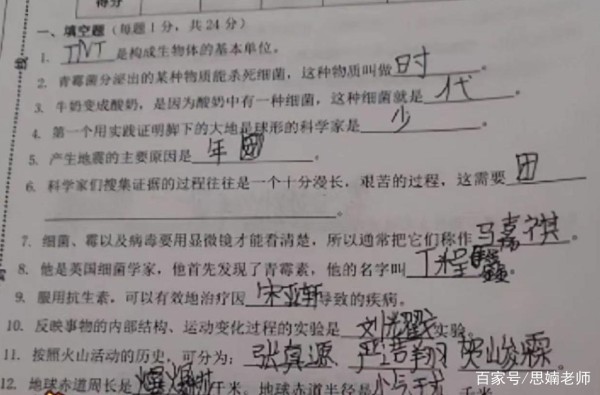 得分
一、填空题（每题1分，共24分）
1. TNT 是构成生物体的基本单位。
2. 青霉菌分泌出的某种物质能杀死细菌，这种物质叫做 时 。
3. 牛奶变成酸奶，是因为酸奶中有一种细菌，这种细菌就是 代 。
4. 第一个用实践证明脚下的大地是球形的科学家是 少 。
5. 产生地震的主要原因是 年团 。
6. 科学家们搜集证据的过程往往是一个十分漫长，艰苦的过程，这需要 团
。
7. 细菌、霉以及病毒要用显微镜才能看清楚，所以通常把它们称作 马嘉祺 。
8. 他是英国细菌学家，他首先发现了青霉素，他的名字叫 丁程鑫 。
9. 服用抗生素，可以有效地治疗因 宋亚轩 导致的疾病。
10. 反映事物的内部结构、运动变化过程的实验是 刘耀 实验。
11. 按照火山活动的历史，可分为： 张真源 严浩翔 贺峻霖
12. 地球赤道周长是 千米，地球赤道半径是 千米
线
百家号/思婻老师